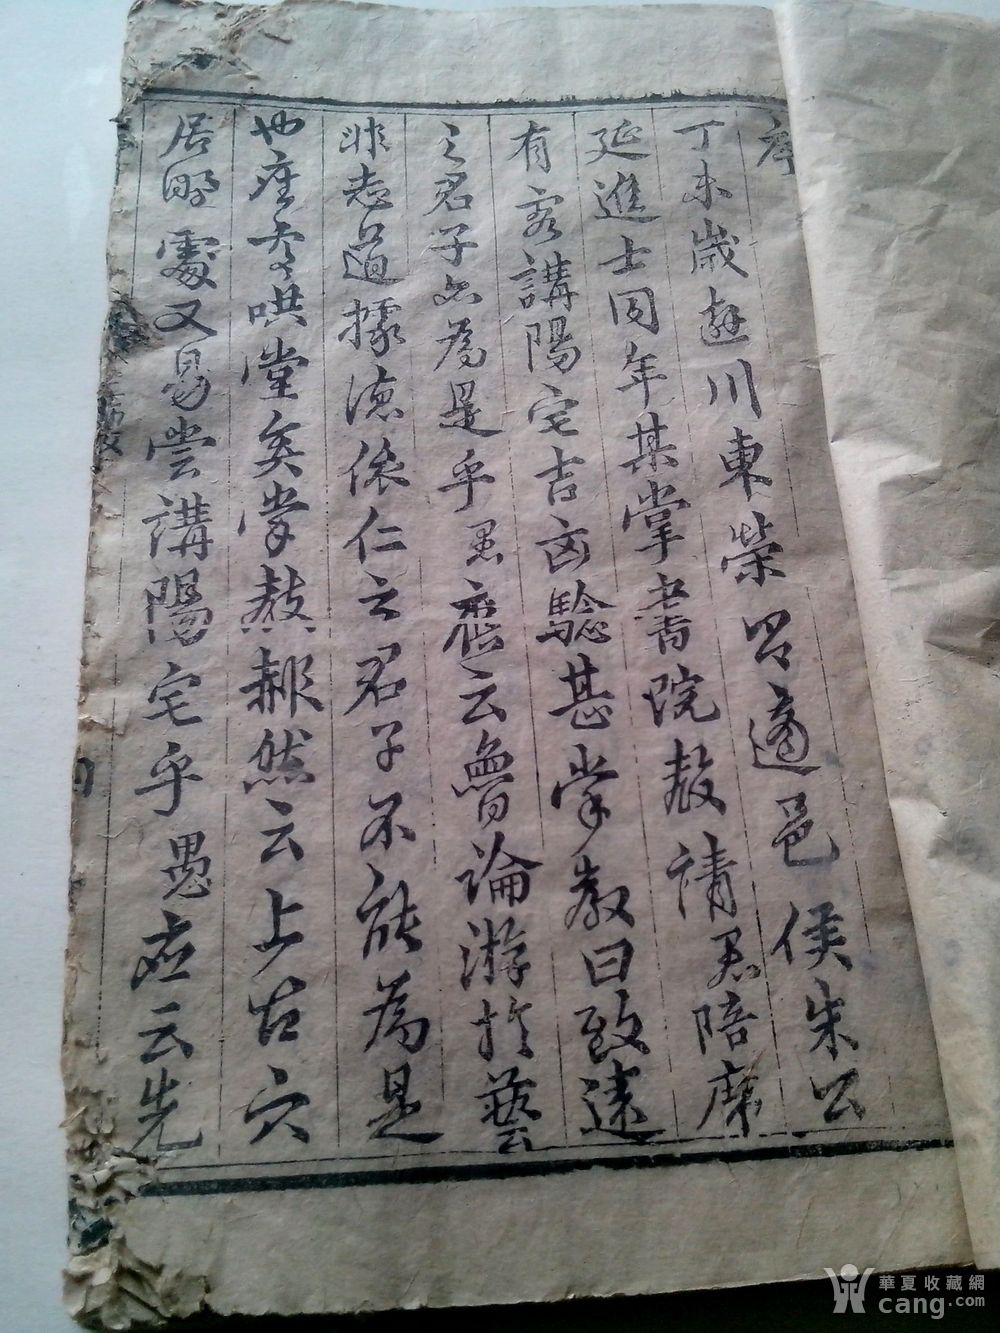 序
丁未歲遊川東榮呂適邑侯朱公
延進士同年某掌書院教請君陪席
有客講陽宅吉凶驗甚掌教曰致遠
之君子亦為是乎愚應云魯論游於藝
非志道據德依仁之君子不能為是
也座客哄堂矣掌教赧然云上古穴
居野處又曷嘗講陽宅乎愚應云先
華夏收藏網
cang.com